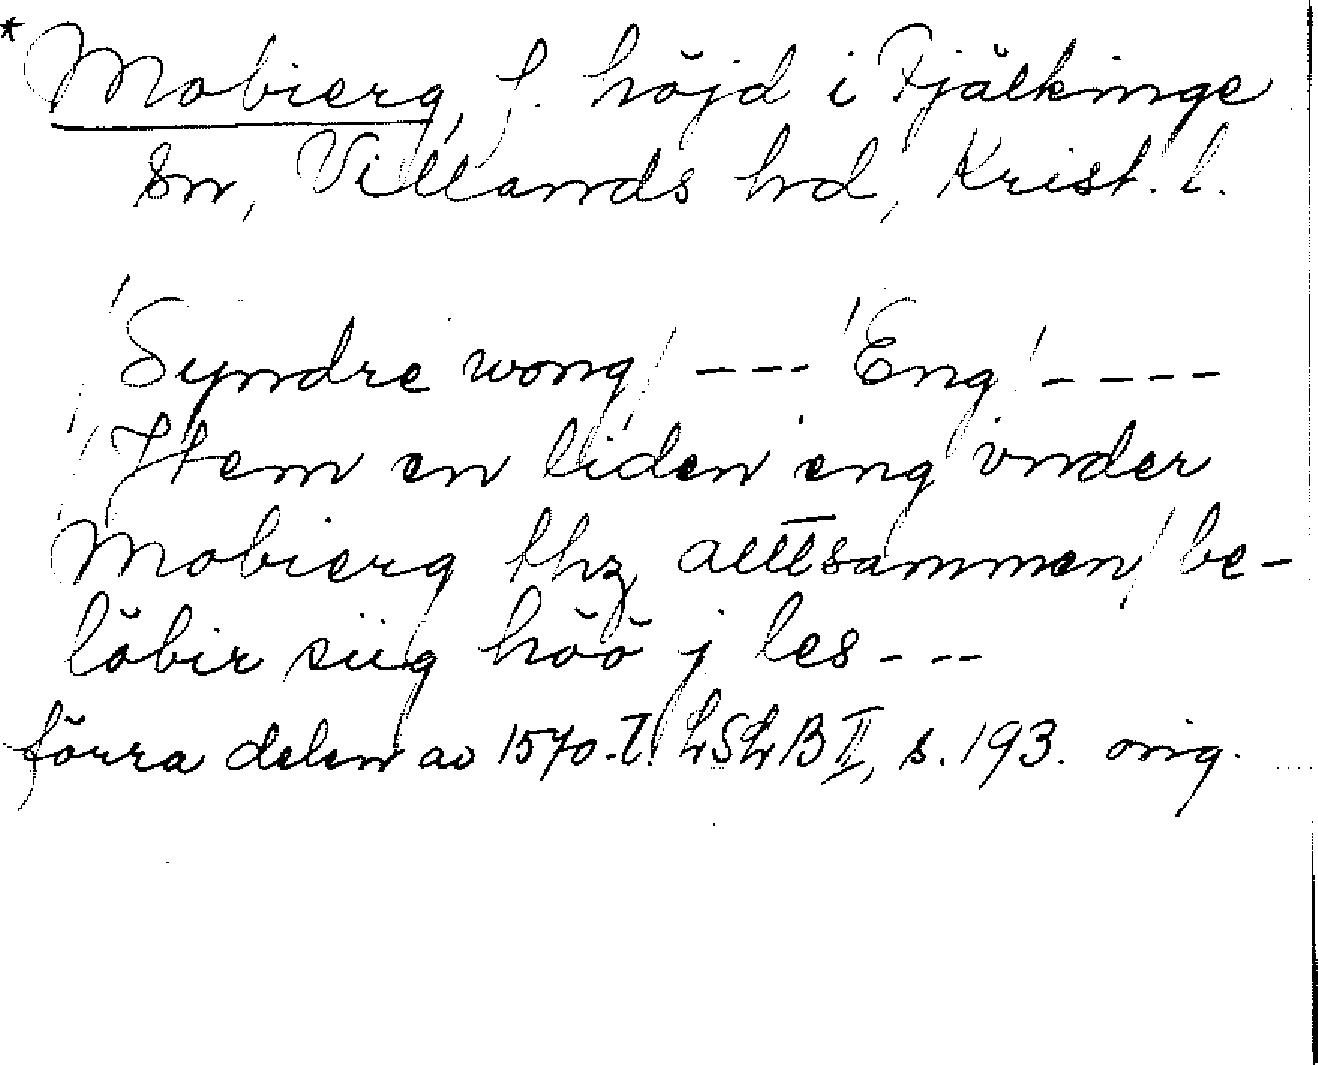 *Mobierg, f. höjd i Fjälkinge
sn, Villands hd, Krist. l.
'Syndre wong / --- 'Eng' ----
Item en liden eng vnder
Mobierg thz alltsammen / be-
löbir siig höö j les ---
förra delen av 1570-t. LSLB II, s. 193. orig.